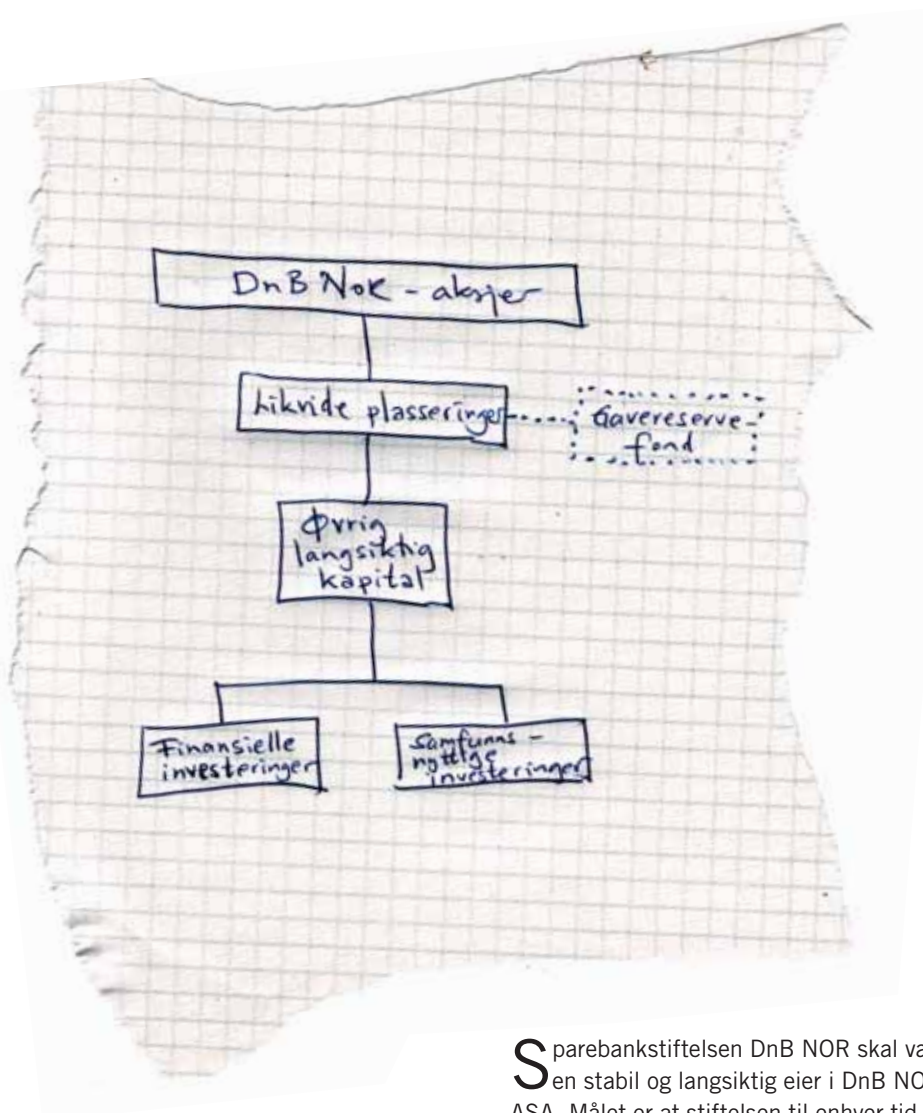 DnB NOR - aksjer
Likvide plasseringer
Gavereserve-
fond
Øvrig
langsiktig
kapital
Finansielle
investeringer
Samfunns -
nyttige
investeringer
Sparebankstiftelsen DnB NOR skal
en stabil og langsiktig eier i DnB
ASA. Målet er at stiftelsen til enhver tid